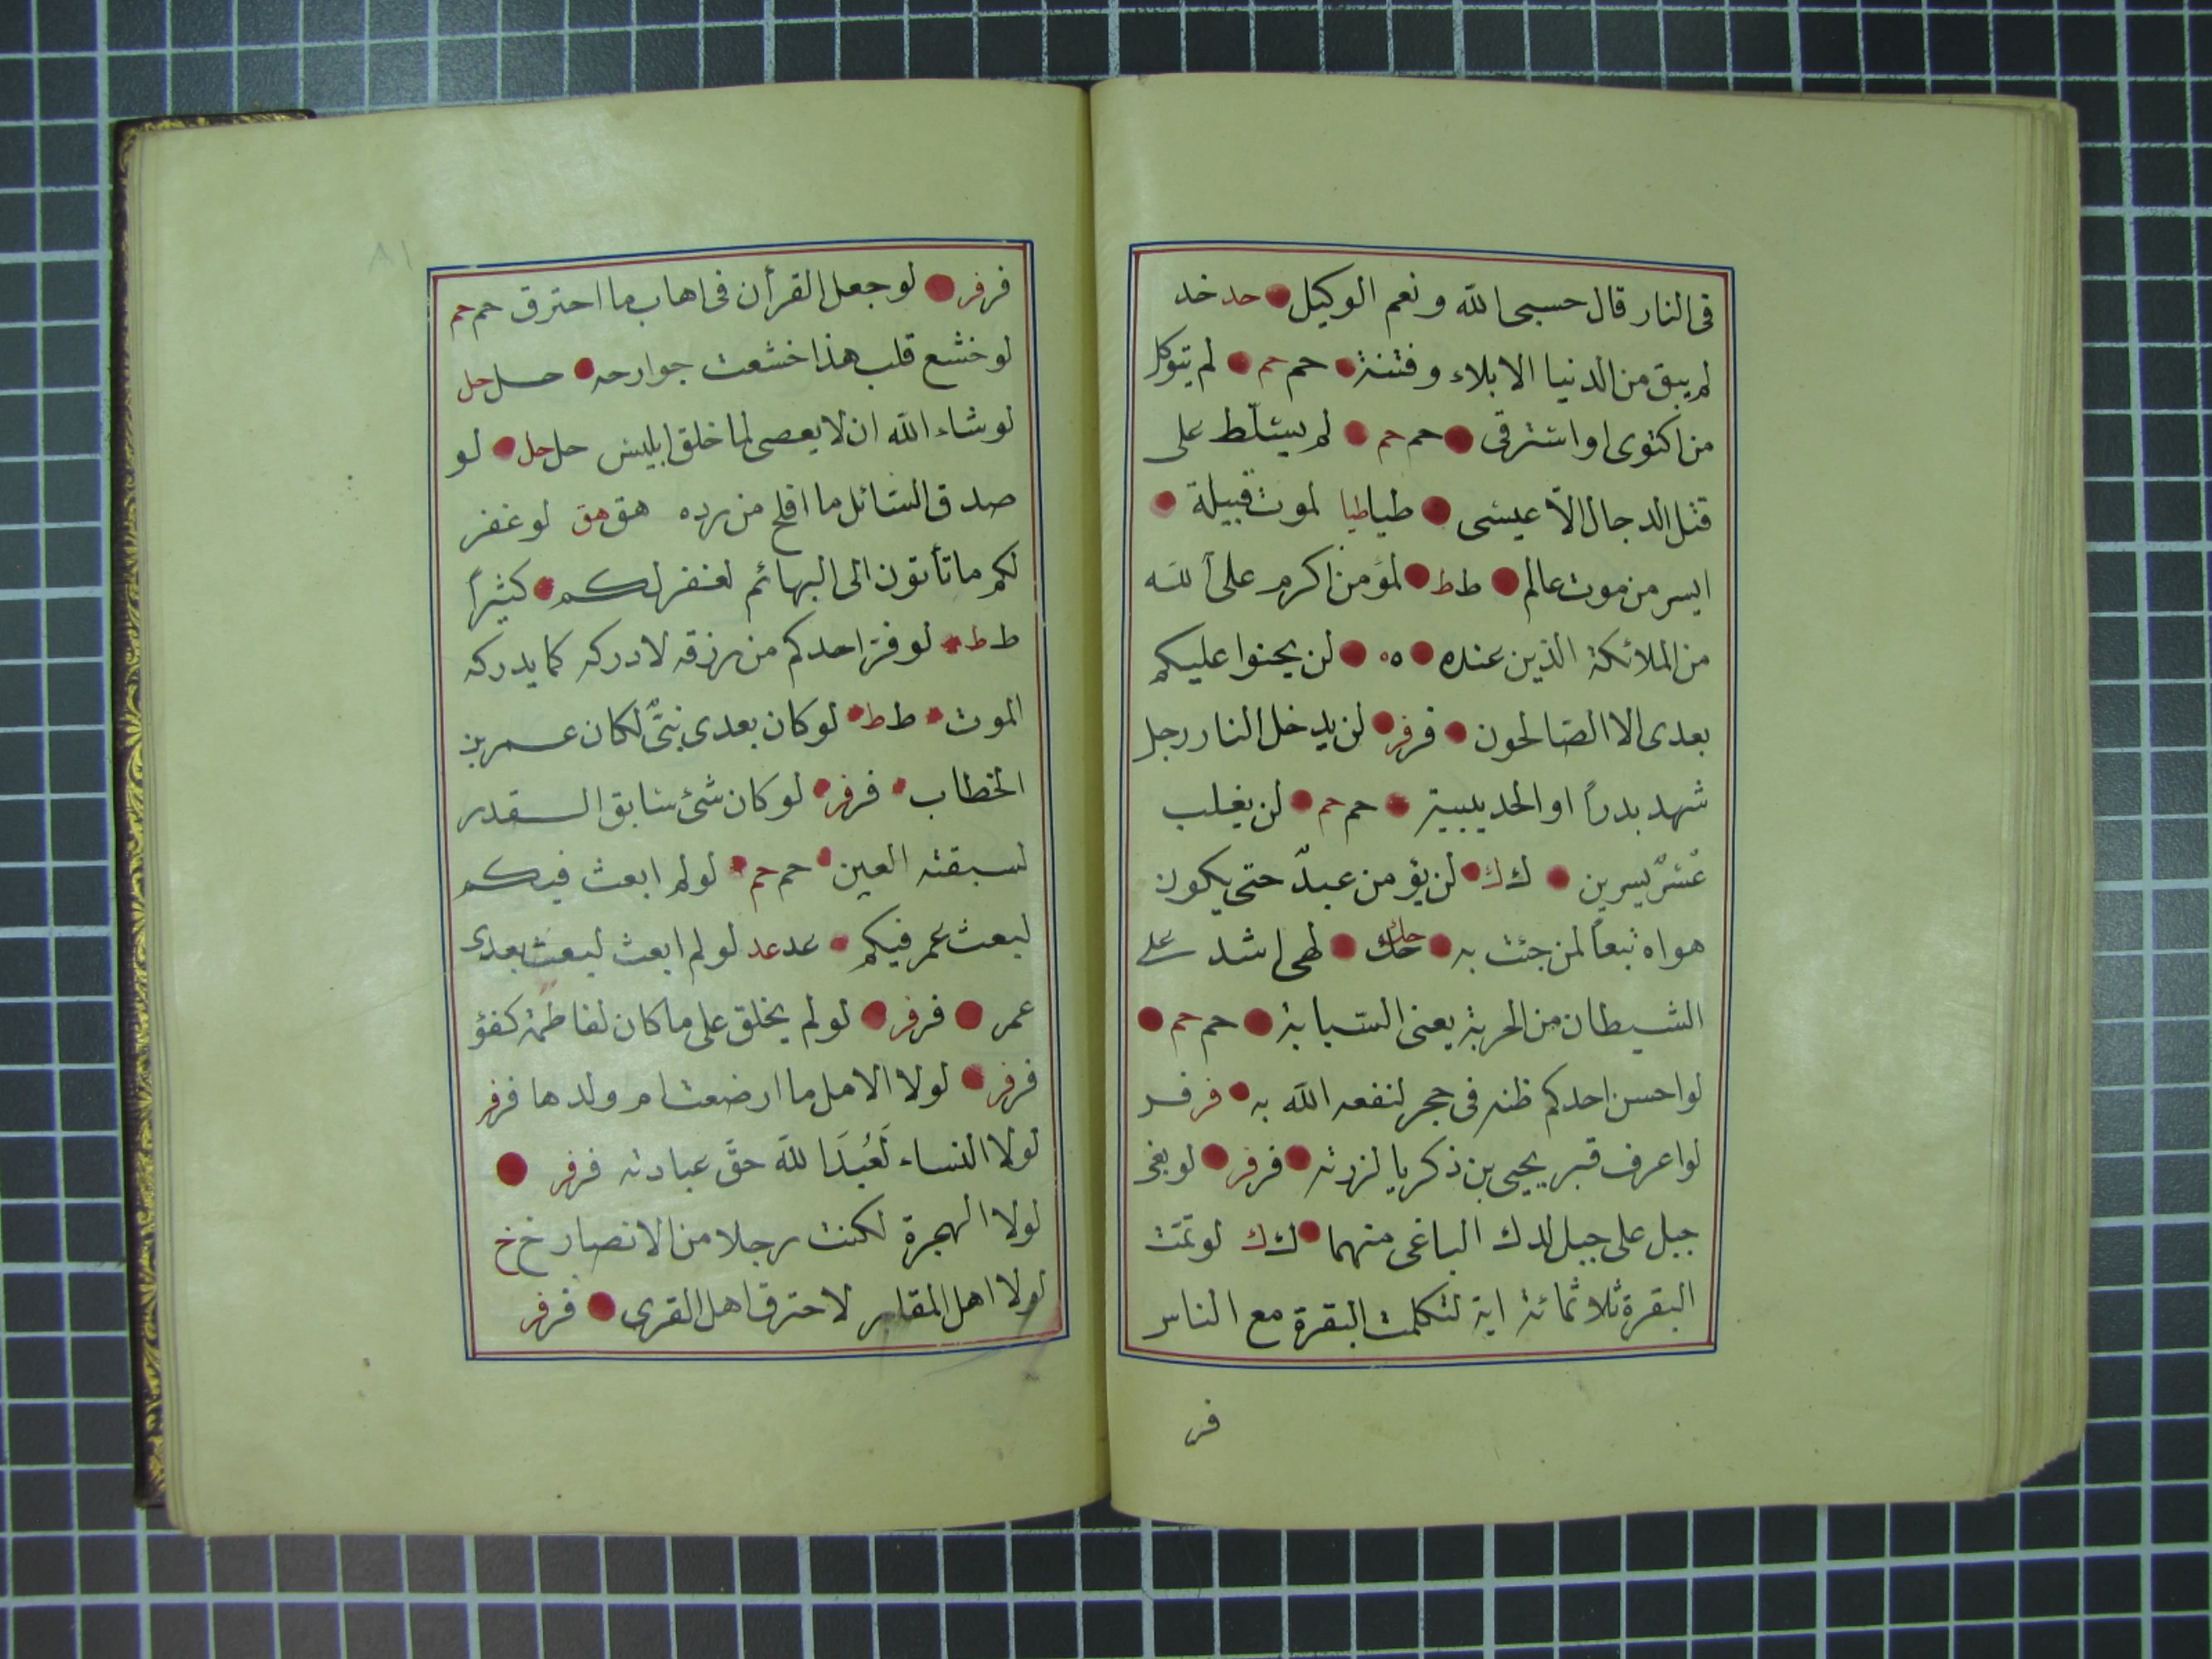 فى النار قال حسبى الله ونعم الوكيل حد خد
لم يبق من الدنيا الا بلاء وفتنة حم حم لم يتوكل
من اكتوى او استرقى حم حم لم يسلّط على
قتل الدجال الّا عيسى طيا طيا لموت قبيلة
ايسر من موت عالم ط ط لمؤمن اكرم على الله
من الملائكة الذين عنده ه ه لن يحنوا عليكم
بعدى الا الصالحون فر فر لن يدخل النار رجل
شهد بدراً او الحديبية حم حم لن يغلب
عُسْرٌ يسرين ك ك لن يؤمن عبدٌ حتى يكون
هواه تبعاً لمن جئت به حك حك لهى اشد على
الشيطان من الحربة يعنى السبابة حم حم
لو احسن احدكم ظنه فى حجر لنفعه الله به فر فر
لو اعرف قبر يحيى بن ذكريا لزرته فر فر لو بغى
جبل على جبل لدك الباغى منهما ك ك لو تمّت
البقرة ثلاثمائة اية لتكلمت البقرة مع الناس
فر
٨١
فر فر لو جعل القرأن فى اهاب ما احترق حم حم
لو خشع قلب هذا خشعت جوارحه حل حل
لو شاء الله ان لا يعصى لما خلق ابليس حل حل لو
صدق السائل ما افلح من رده هق هق لو غفر
لكم ما تأتون الى البهائم لغفر لكم كثيراً
ط ط لو فرّ احدكم من رزقه لادركه كما يدركه
الموت ط ط لو كان بعدى نبىٌّ لكان عمر بن
الخطاب فر فر لو كان شئ سابق القدر
لسبقته العين حم حم لو لم ابعث فيكم
لبعث عمر فيكم عد عد لو لم ابعث لبعث بعدى
عمر فر فر لو لم يخلق على ما كان لفاطمة كفؤ
فر فر لولا الامل ما ارضعت ام ولدها فر فر
لولا النساء لَعُبِدَ الله حقّ عبادته فر فر
لولا الهجرة لكنت رجلا من الانصار خ خ
لولا اهل المقابر لاحترق اهل القرى فر فر